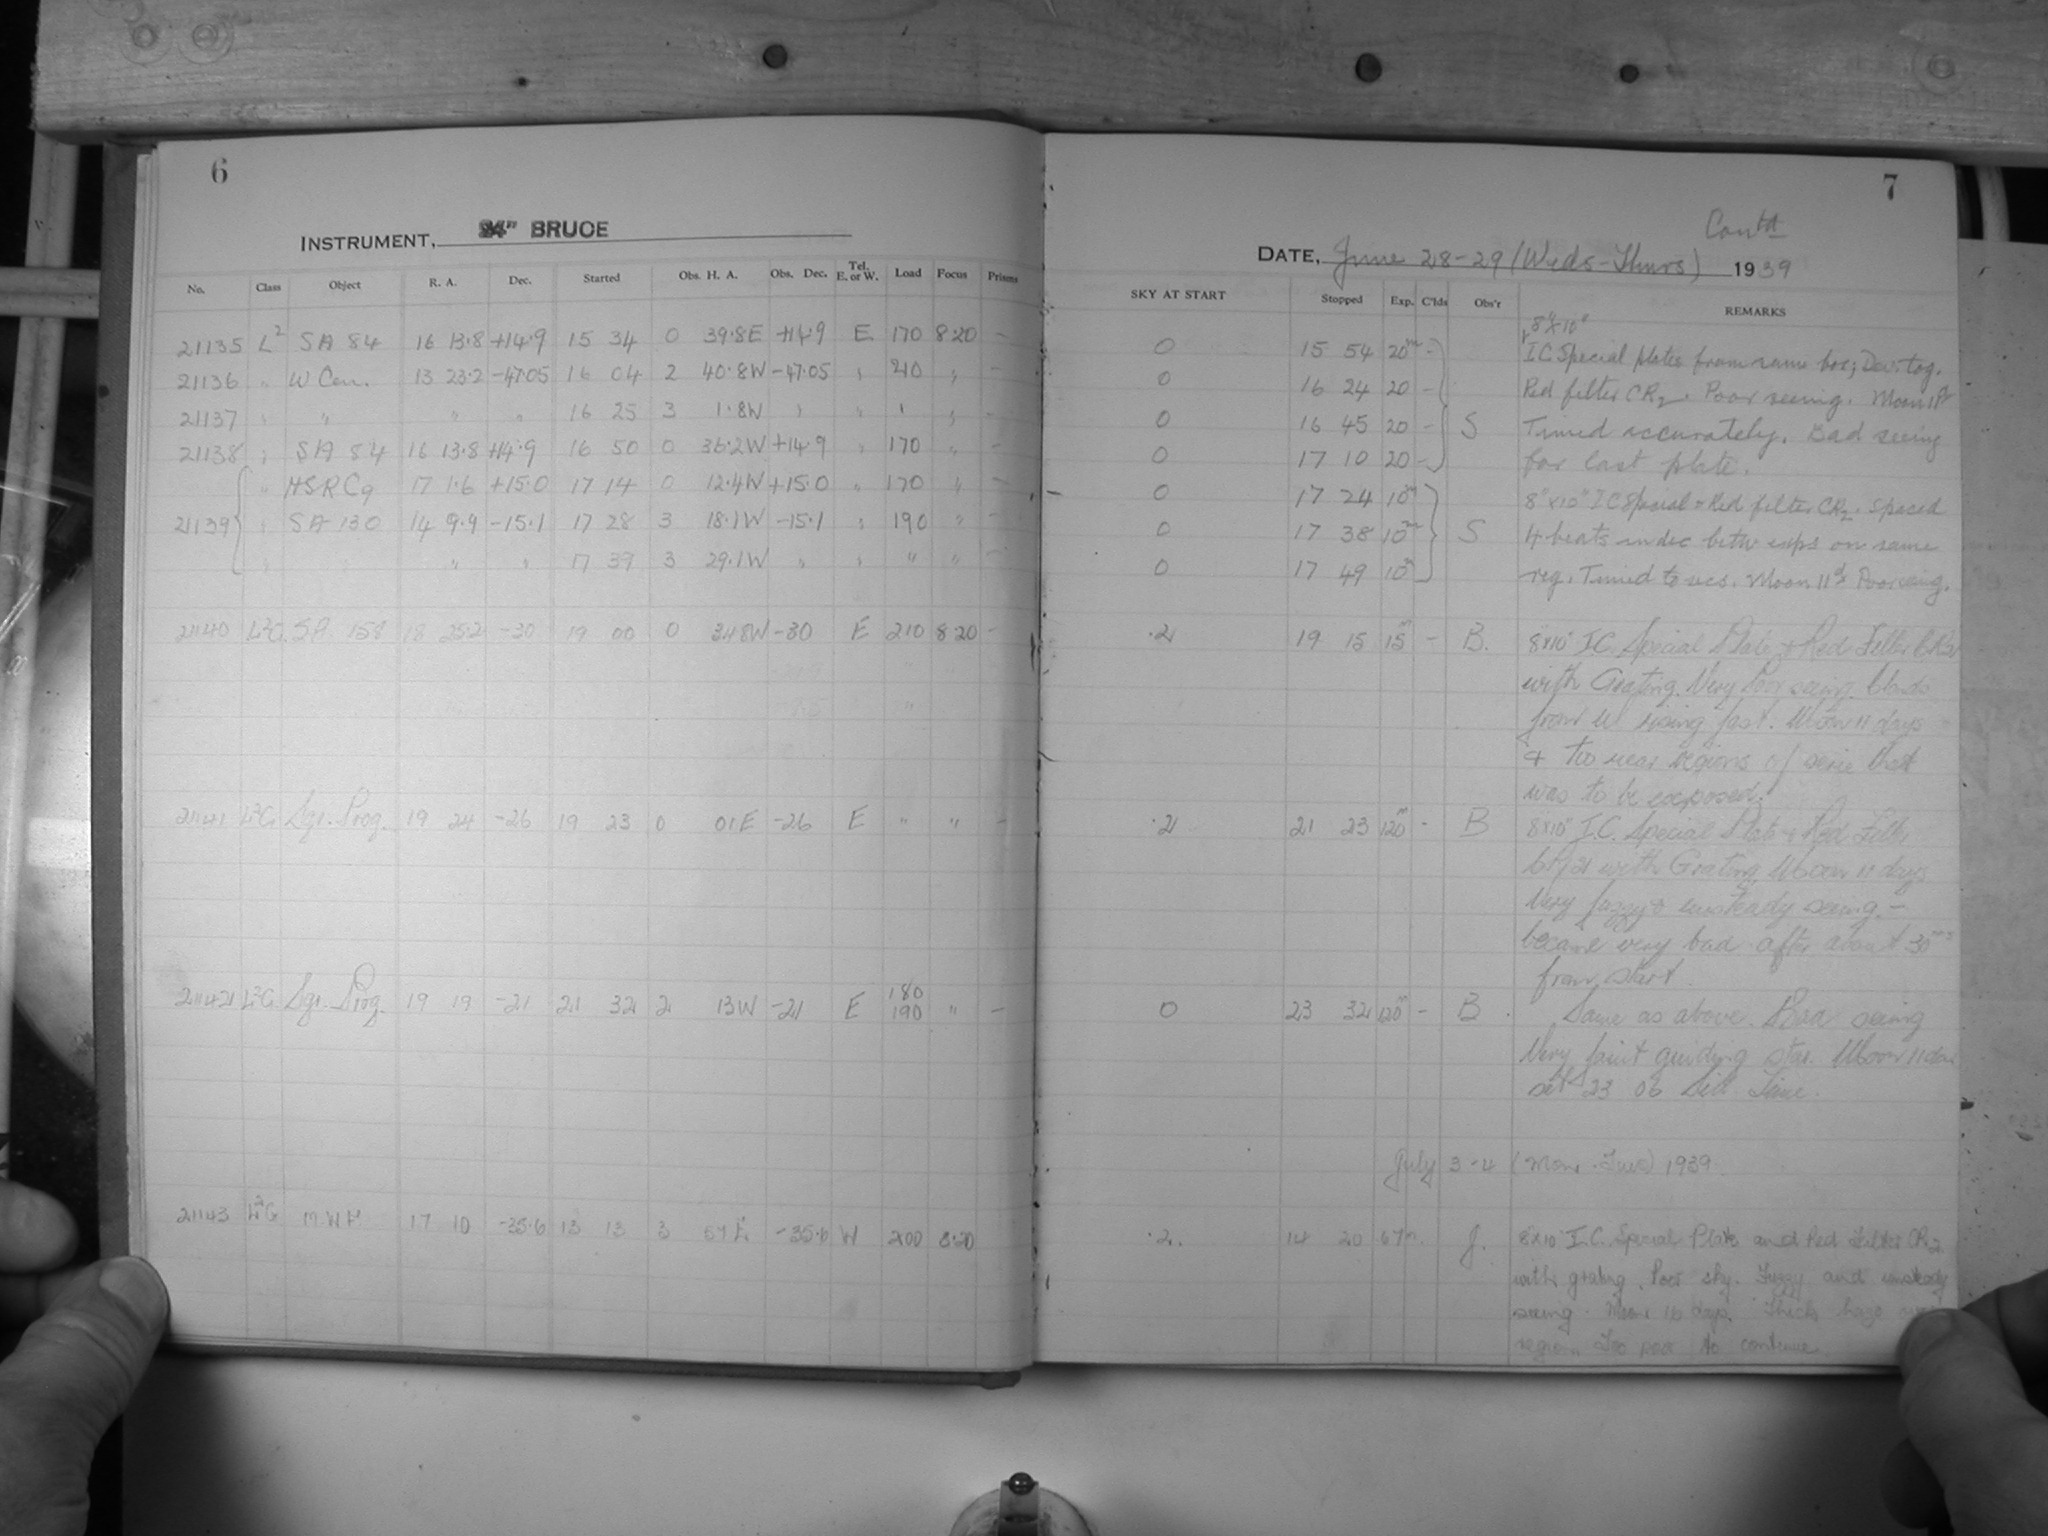 6
INSTRUMENT, 24" BRUCE
No. Class Object R. A. Dec. Started Obs. H. A. Obs. Dec. Tel. E. or W. Load Focus Prisms
21135 L² SA 84 16 13.8 +14.9 15 34 0 39.8E +14.9 E 170 8.20 -
21136 " W Cen. 13 23.2 -47.05 16 04 2 40.8W -47.05 " 210 " -
21137 " " " " 16 25 3 1.8W " " " " -
21138 " SA 84 16 13.8 +14.9 16 50 0 36.2W +14.9 " 170 "
" HSRC9 17 1.6 +15.0 17 14 0 12.4W +15.0 " 170 " -
21139 " SA 130 14 9.9 -15.1 17 28 3 18.1W -15.1 " 190 " -
" " " " 17 39 3 29.1W " " " " -
21140 L²G. SA. 158 18 25.2 -30 19 00 0 348W -30 E 210 8.20 -
21141 L²G. Sgr. Prog. 19 24 -26 19 23 0 01E -26 E " " -
21142 L²G. Sgr. Prog. 19 19 -21 21 32 2 13W -21 E 180 190 " -
21143 L²G M.W.F. 17 10 -35.6 13 13 3 57E -35.6 W 200 8.20
7
Contd
DATE, June 28-29 (Weds-Thurs) 1939
SKY AT START Stopped Exp. C'lds Obs'r REMARKS
8"x10"
0 15 54 20ᵐ - I.C. Special plates from same box; Dev. tog.
0 16 24 20 - Red filter CR2. Poor seeing. Moon 11ᵈ
0 16 45 20 - S Timed accurately. Bad seeing
0 17 10 20 - for last plate.
0 17 24 10ᵐ 8"x10" IC Special & Red filter CR2. Spaced
0 17 38 10ᵐ S 4 beats in dec betw exps on same
0 17 49 10ᵐ reg. Timed to secs. Moon 11ᵈ Poor seeing.
.2 19 15 15ᵐ - B. 8"x10" I.C. Special Plate & Red Filter CR2
with Grating. Very Poor seeing. Clouds
from W rising fast. Moon 11 days
& too near regions of series that
was to be exposed.
.2 21 23 120ᵐ - B 8"x10" I.C. Special Plate & Red Filter
CR2 with Grating. Moon 11 days
Very fuzzy & unsteady seeing -
became very bad after about 30ᵐˢ
from start.
0 23 32 120ᵐ - B. Same as above. Bad seeing
Very faint guiding star. Moon 11 days
set 23 06 Sid. Time.
July 3-4 (Mon. Tues) 1939
.2. 14 20 67ᵐ. J. 8"x10" I.C. Special Plate and Red Filter CR2
with grating. Poor sky. Fuzzy and unsteady
seeing. Moon 16 days. Thick haze
region Too poor to continue.